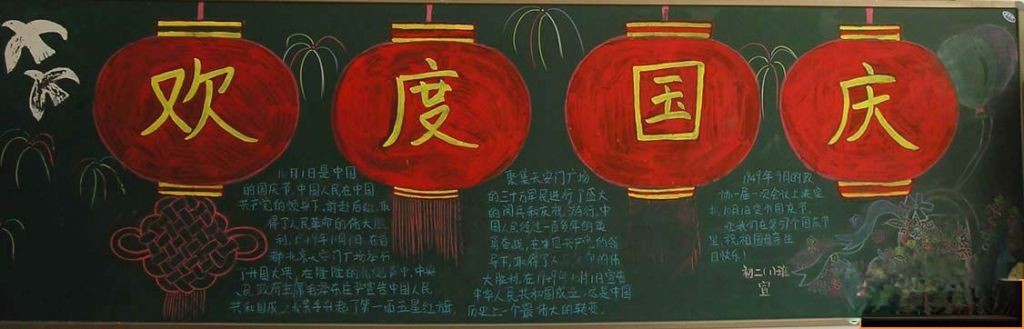 欢度国庆
10月1日是中国
的国庆节,中国人民在中国
共产党的领导下,前赴后继,取
得了人民革命的伟大胜
利。1949年10月1日,在首
都北京天安门广场举行
了开国大典,在隆隆的礼炮声中,中央
人民政府主席毛泽东庄严宣告中国人民
共和国成立,
升起了第一面五星红旗。
聚集天安门广场
的三十万军民进行了盛大
的阅兵和庆祝游行。中
国人民经过一百多年的英
勇奋战,在中国共产党的领
导下,取得了人民革命的伟
大胜利,在1949年10月1日宣告
中华人民共和国成立,这是中国
历史上一个最伟大的转变。
1949年9月的政
协一届一次会议上决定
把10月1日定为国庆节。
让我们在第57个国庆节
里,祝祖国母亲生
日快乐!
初二(1)班
宣